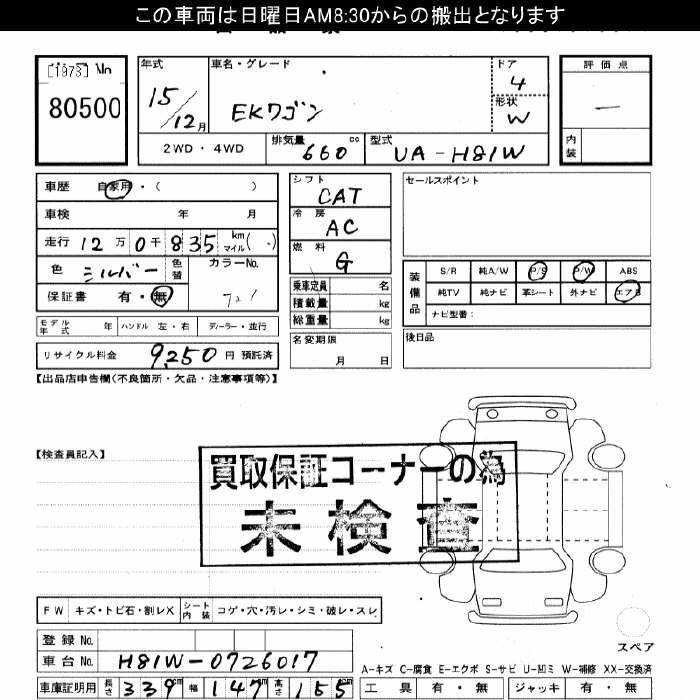 この車両は日曜日AM8:30からの搬出となります
[1973] No
80500
年式 15/12月
車名・グレード EKワゴン
ドア 4
形状 W
評価点 ー
内装
2WD・4WD
排気量 660 cc
型式 UA-H81W
車歴 自家用・( )
車検 年 月
走行 12万0千835 km マイル( )
色 シルバー 色替 カラーNo.
保証書 有・無
モデル年式 年 ハンドル 左・右 ディーラー・並行
リサイクル料金 9,250 円 預託済
シフト CAT
冷房 AC
燃料 G
乗車定員 名
積載量 kg
総重量 kg
名変期限 月 日
セールスポイント
装備品
S/R 純A/W P/S P/W ABS
純TV 純ナビ 革シート 外ナビ エアB
ナビ型番:
後日品
【出品店申告欄(不良箇所・欠品・注意事項等)】
【検査員記入】
買取保証コーナーの為
未検査
FW キズ・トビ石・割レX シート内装 コゲ・穴・汚レ・シミ・破レ・スレ
登録No.
車台No. H81W-0726017
車庫証明用 長さ 339cm 幅 147cm 高さ 155cm
スペア
A-キズ C-腐食 E-エクボ S-サビ U-凹ミ W-補修 XX-交換済
工具 有・無 ジャッキ 有・無